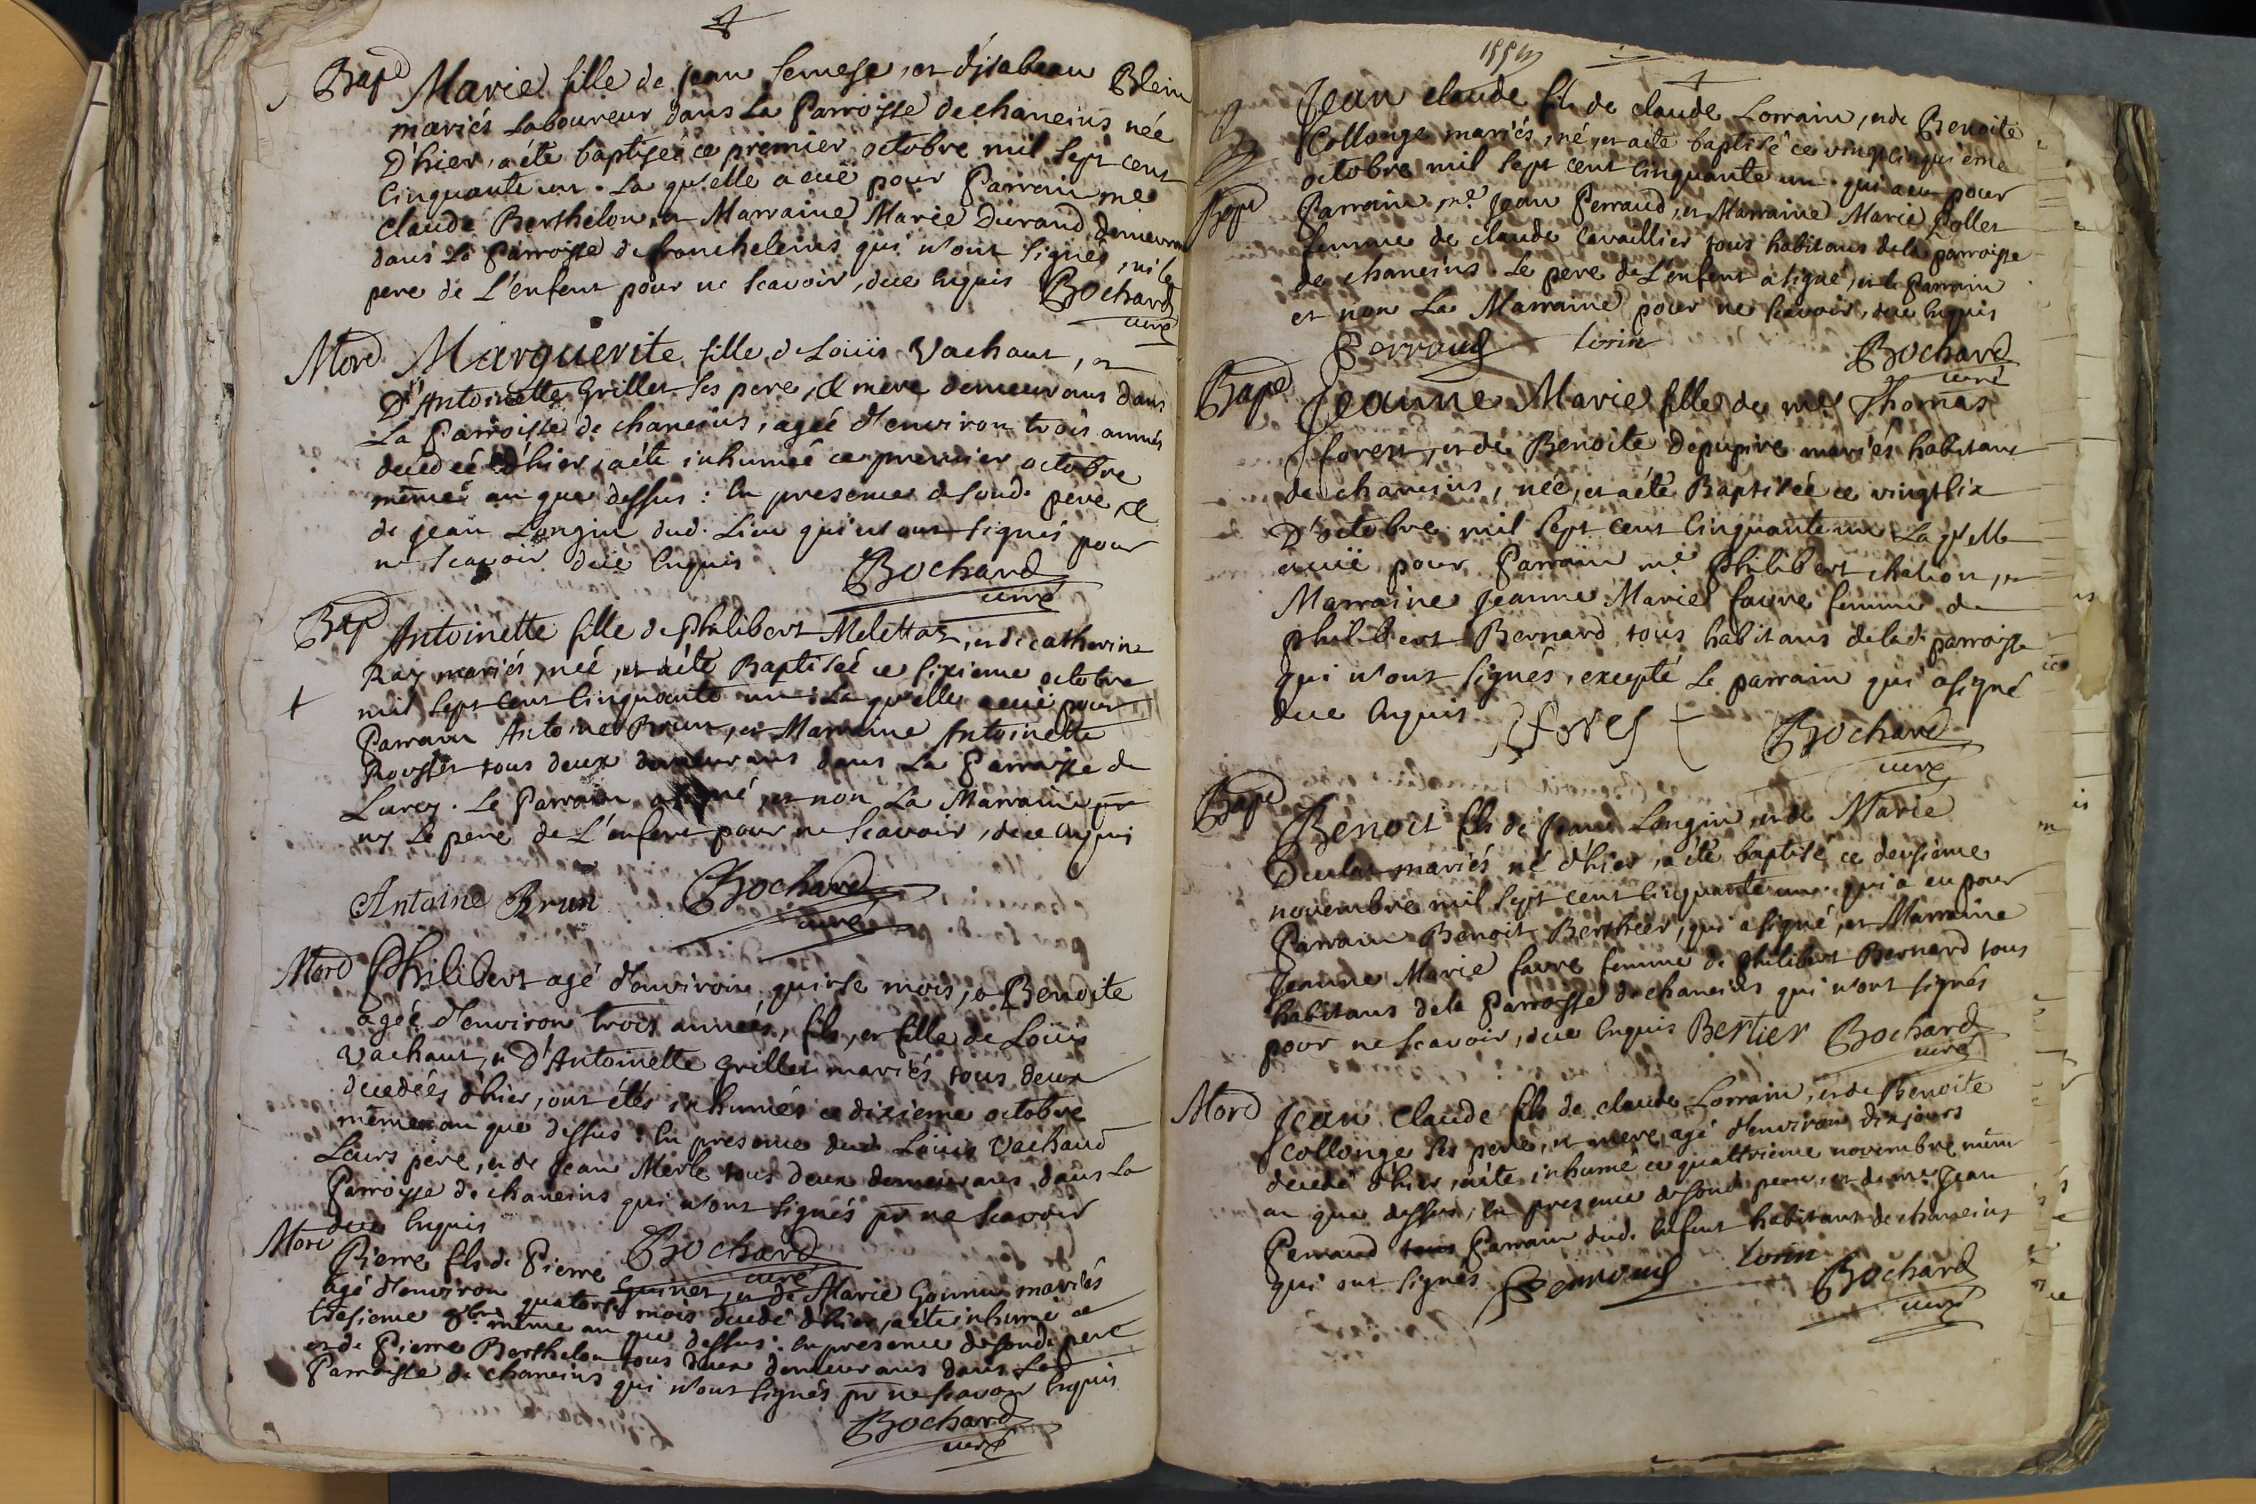 Bap Marie fille de jean semesse, et d'jsabeau Blein
mariés Laboureur dans La Parroisse de chaneins née
D'hier, a été baptiseé ce premier octobre mil sept cent
Cinquante un. La qu'elle a eüe pour Parrain me
claude Berthelon, et Marraine Marie Durand demeurans
dans La Parroisse de francheleins qui n'ont signés, ni le
pere de L'enfent pour ne scavoir, due enquis Bochard
curé
Mord Marguerite fille de Loüis Vachaut, et
D'Antoinette Grillet ses pere, et mere demeurans dans
La Parroisse de chaneins, ageé d'environ trois années
decedeé d'hier, a été inhumeé ce premier octobre
même an que dessus : En presence de soud. pere, et
de jean Longin dud. Lieu qui n'ont signés pour
ne scavoir düe enquis Bochard
curé
Bap Antoinette fille de philibert Melettaz, et de catherine
Ray mariés, neé, et a été Baptiseé ce sixieme octobre
mil sept cent Cinquante un : La qu'elle a eüe pour
Parrain Antoine Brun, et Marraine Antoinette
tous deux demeurans dans La Parroisse de
Lurcy. Le Parrain a signé, et non La Marraine
ny Le pere de L'enfent pour ne scavoir, due enquis
Antoine Brun Bochard
curé
Mord Philibert agé d'environ quinse mois, et Benoite
ageé d'environ trois anneés, fils, et fille de Loüis
Vachaut, et D'Antoinette Grillet mariés tous deux
decedeés d'hier, ont étés inhumés ce dixieme octobre
même an que dessus : En presence dud. Loüis Vachaud
Leurs pere, et de jean Merle tous deux demeurans dans La
Parroisse de chaneins qui n'ont signés pr ne scavoir
due enquis Bochard
curé
Mord Pierre fils de Pierre Guinet, et de Marie Gonnu mariés
agé d'environ quatorse mois decedé d'hier, a été inhumé ce
tresieme 8bre même an que dessus : En presence de soud. pere
et de Pierre Berthelon tous deux demeurans dans Lad.
Parroisse de chaneins qui n'ont signés pr ne scavoir enquis
Bochard
curé
Jean claude fils de claude Lorrain, et de Benoite
Collonge mariés, né, et a été baptisé ce vingtcinquieme
octobre mil sept cent Cinquante un. qui a eu pour
Bapt Parrain, me jean Perraud, et Marraine Marie Pollet
femme de claude Cavaillier tous habitans de la parroisse
de chaneins. Le pere de L'enfent a signé, et le Parrain
et non La Marraine pour ne scavoir, due enquis
Perraud Lorin Bochard
curé
Bap Jeanne Marie fille de me Thomas
forest, et de Benoite Depupire mariés habitans
de chaneins, neé, et a été Baptiseé ce vingtsix
D'octobre mil sept cent Cinquante un La qu'elle
a eüe pour Parrain me Philibert chalion, et
Marraine Jeanne Marie favre femme de
philibert Bernard tous habitans de lad. parroisse
qui n'ont signés, excepté Le parrain qui a signé
due enquis fores Bochard
curé
Bap Benoit fils de jean Longin, et de Marie
mariés né d'hier, a été baptisé ce deusieme
novembre mil sept cent Cinquante un. qui a eu pour
Parrain Benoit Berthier, qui a signé, et Marraine
Jeanne Marie favre femme de philibert Bernard tous
habitans de la Parroisse de chaneins qui n'ont signés
pour ne scavoir, due enquis Bertier Bochard
curé
Mord Jean Claude fils de claude Lorrain, et de Benoite
Collonge ses pere, et mere, agé d'environ dix jours
decedé d'hier, a été inhumé ce quattrieme novembre même
an que dessus, En presence de soud pere, et de me Jean
Perraud Parrain dud. enfent habitans de chaneins
qui ont signés Perraud Lorin Bochard
curé